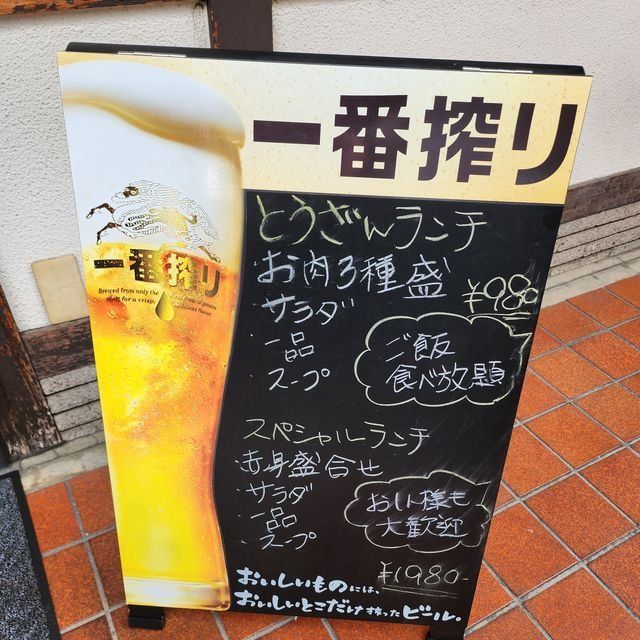 一番搾り
とうざんランチ
・お肉3種盛
・サラダ
・一品
・スープ
¥980
ご飯
食べ放題
一番搾り
Brewed from only the
スペシャルランチ
・赤身盛合せ
・サラダ
・一品
・スープ
お一人様も
大歓迎
¥1980-
おいしいものには、
おいしいとこだけ搾ったビール。